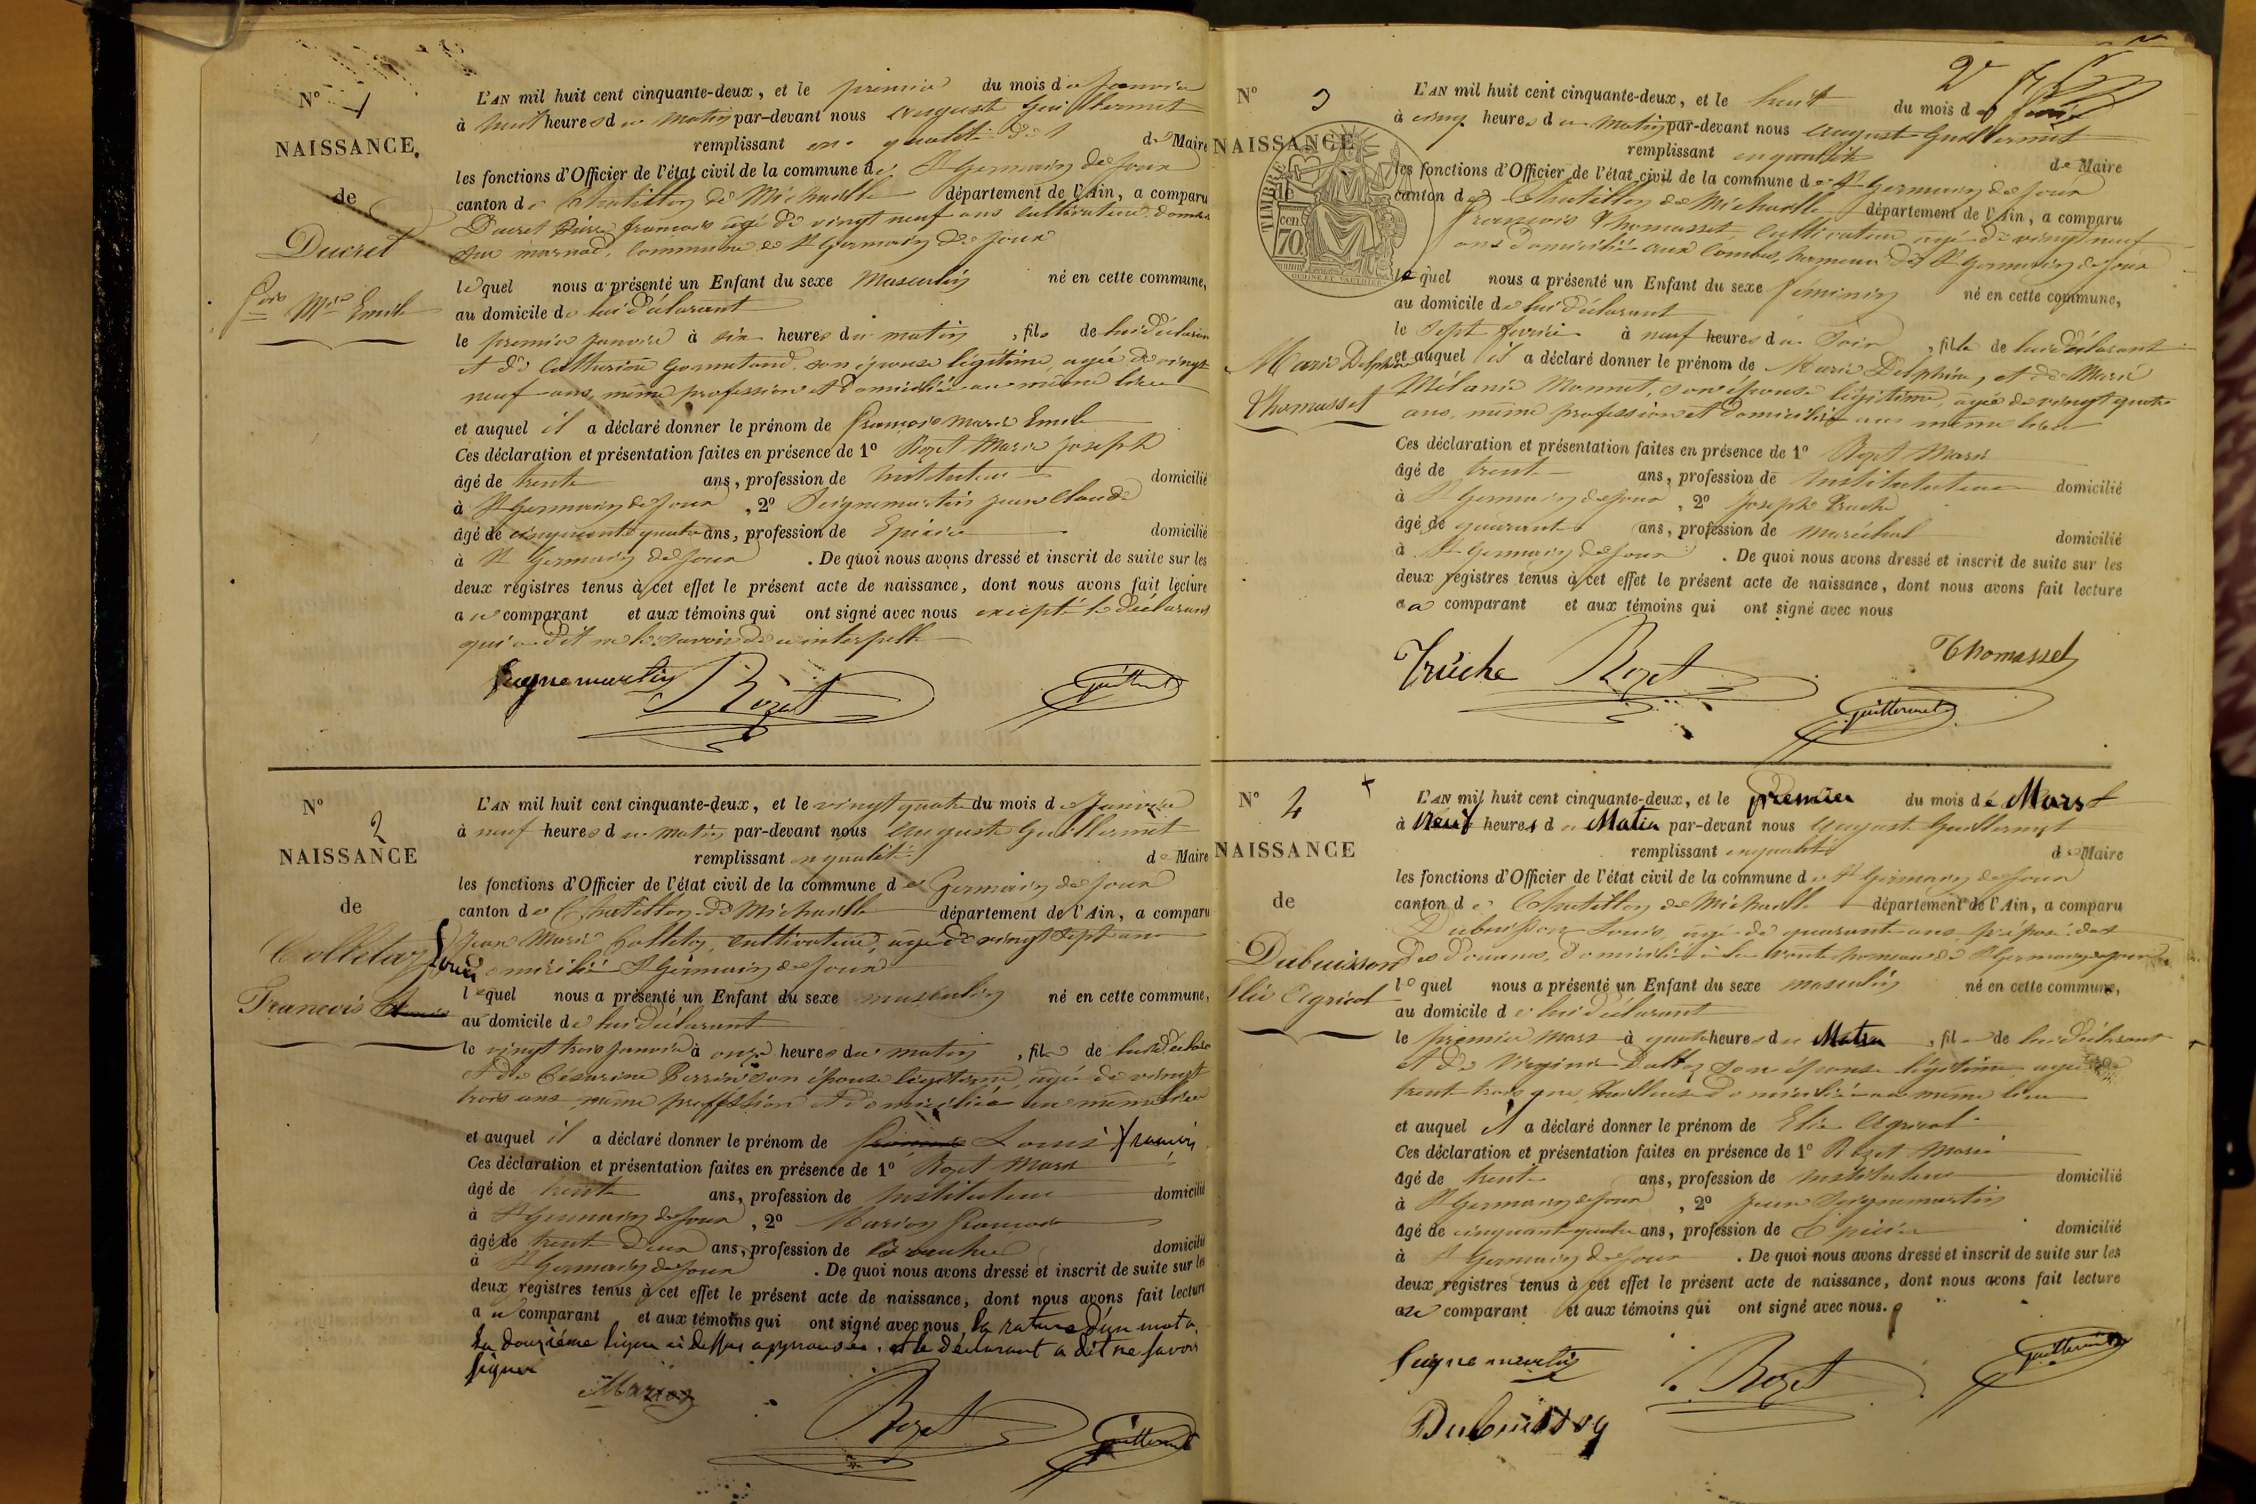 N° 1
NAISSANCE
de
Ducret
Fçois Mie Emile
L'AN mil huit cent cinquante-deux, et le premier du mois de Janvier
à huit heures du matin par-devant nous August Guillermet
remplissant en qualité de Maire
les fonctions d'Officier de l'état civil de la commune de St Germain de Joux
canton de Chatillon de Michaille département de l'Ain, a comparu
Ducret Pierre françois agé de vingt neuf ans cultivateur
sur marnod, commune de St Germain de Joux
lequel nous a présenté un Enfant du sexe Masculin né en cette commune,
au domicile de lui déclarant
le premier janvier à six heures du matin, fils de lui déclarant
et de Catherine son épouse légitime, agée de vingt
neuf ans, même profession et domiciliée au même lieu
et auquel il a déclaré donner le prénom de François Marie Emile
Ces déclaration et présentation faites en présence de 1° Rozet Marie Joseph
âgé de trente ans, profession de Instituteur domicilié
à St Germain de Joux, 2° Seignemartin Jean Claude
âgé de cinquante quatre ans, profession de Epicier domicilié
à St Germain de Joux. De quoi nous avons dressé et inscrit de suite sur les
deux registres tenus à cet effet le présent acte de naissance, dont nous avons fait lecture
au comparant et aux témoins qui ont signé avec nous excepté le déclarant
qui a dit ne le savoir de ce interpellé
Seignemartin Rozet Guillermet
N° 2
NAISSANCE
de
Colletaz Louis
François
L'AN mil huit cent cinquante-deux, et le vingt quatre du mois de Janvier
à neuf heures du matin par-devant nous August Guillermet
remplissant en qualité de Maire
les fonctions d'Officier de l'état civil de la commune de Germain de Joux
canton de Chatillon de Michaille département de l'Ain, a comparu
Jean Marie Colletaz, cultivateur, agé de vingt sept ans
domicilié St Germain de Joux
lequel nous a présenté un Enfant du sexe masculin né en cette commune,
au domicile de lui déclarant
le vingt trois janvier à onze heures du matin, fils de lui déclarant
et de Césarine Perrin son épouse légitime, agée de vingt
trois ans même profession et domiciliée au même lieu
et auquel il a déclaré donner le prénom de Louis François
Ces déclaration et présentation faites en présence de 1° Rozet Marie
âgé de trente ans, profession de Instituteur domicilié
à St Germain de Joux, 2° Marion François
âgé de trente deux ans, profession de domicilié
à St Germain de Joux. De quoi nous avons dressé et inscrit de suite sur les
deux registres tenus à cet effet le présent acte de naissance, dont nous avons fait lecture
au comparant et aux témoins qui ont signé avec nous, la rature d'un mot a
la douzième ligne ci dessus approuvée. et le déclarant a dit ne savoir
signer
Marion Rozet Guillermet
2e
N° 3
NAISSANCE
TIMBRE
70
Marie Delphine
Thomasset
L'AN mil huit cent cinquante-deux, et le huit du mois de février
à cinq heures du matin par-devant nous August Guillermet
remplissant en qualité de Maire
les fonctions d'Officier de l'état civil de la commune de St Germain de Joux
canton de Chatillon de Michaille département de l'Ain, a comparu
François Thomasset, cultivateur agé de vingt neuf
ans domicilié aux Combes, hameau de St Germain de Joux
lequel nous a présenté un Enfant du sexe féminin né en cette commune,
au domicile de lui déclarant
le sept février à neuf heures du soir, fille de lui déclarant
et auquel il a déclaré donner le prénom de Marie Delphine, et de Marie
Mélanie Monnet, son épouse légitime, agée de vingt quatre
ans, même profession et domiciliée au même lieu
Ces déclaration et présentation faites en présence de 1° Rozet Marie
âgé de trente ans, profession de Instituteur domicilié
à St Germain de Joux, 2° Joseph Truche
âgé de quarante ans, profession de maréchal domicilié
à St Germain de Joux. De quoi nous avons dressé et inscrit de suite sur les
deux registres tenus à cet effet le présent acte de naissance, dont nous avons fait lecture
au comparant et aux témoins qui ont signé avec nous
Trüche Rozet Thomasset
Guillermet
N° 4
NAISSANCE
de
Dubuisson
Elie Agricol
L'AN mil huit cent cinquante-deux, et le premier du mois de Mars
à Neuf heures du Matin par-devant nous August Guillermet
remplissant en qualité de Maire
les fonctions d'Officier de l'état civil de la commune de St Germain de Joux
canton de Chatillon de Michaille département de l'Ain, a comparu
Dubuisson Louis, agé de quarante ans préposé des
des douanes, domicilié à hameau de St Germain de Joux
lequel nous a présenté un Enfant du sexe masculin né en cette commune,
au domicile de lui déclarant
le premier mars à quatre heures du Matin, fils de lui déclarant
et de Virginie son épouse légitime agée de
trente trois ans, domiciliée au même lieu
et auquel il a déclaré donner le prénom de Elie Agricol
Ces déclaration et présentation faites en présence de 1° Rozet Marie
âgé de trente ans, profession de Instituteur domicilié
à St Germain de Joux, 2° Jean Seignemartin
âgé de cinquante quatre ans, profession de Epicier domicilié
à St Germain de Joux. De quoi nous avons dressé et inscrit de suite sur les
deux registres tenus à cet effet le présent acte de naissance, dont nous avons fait lecture
au comparant et aux témoins qui ont signé avec nous.
Seignemartin Rozet Guillermet
Dubuisson